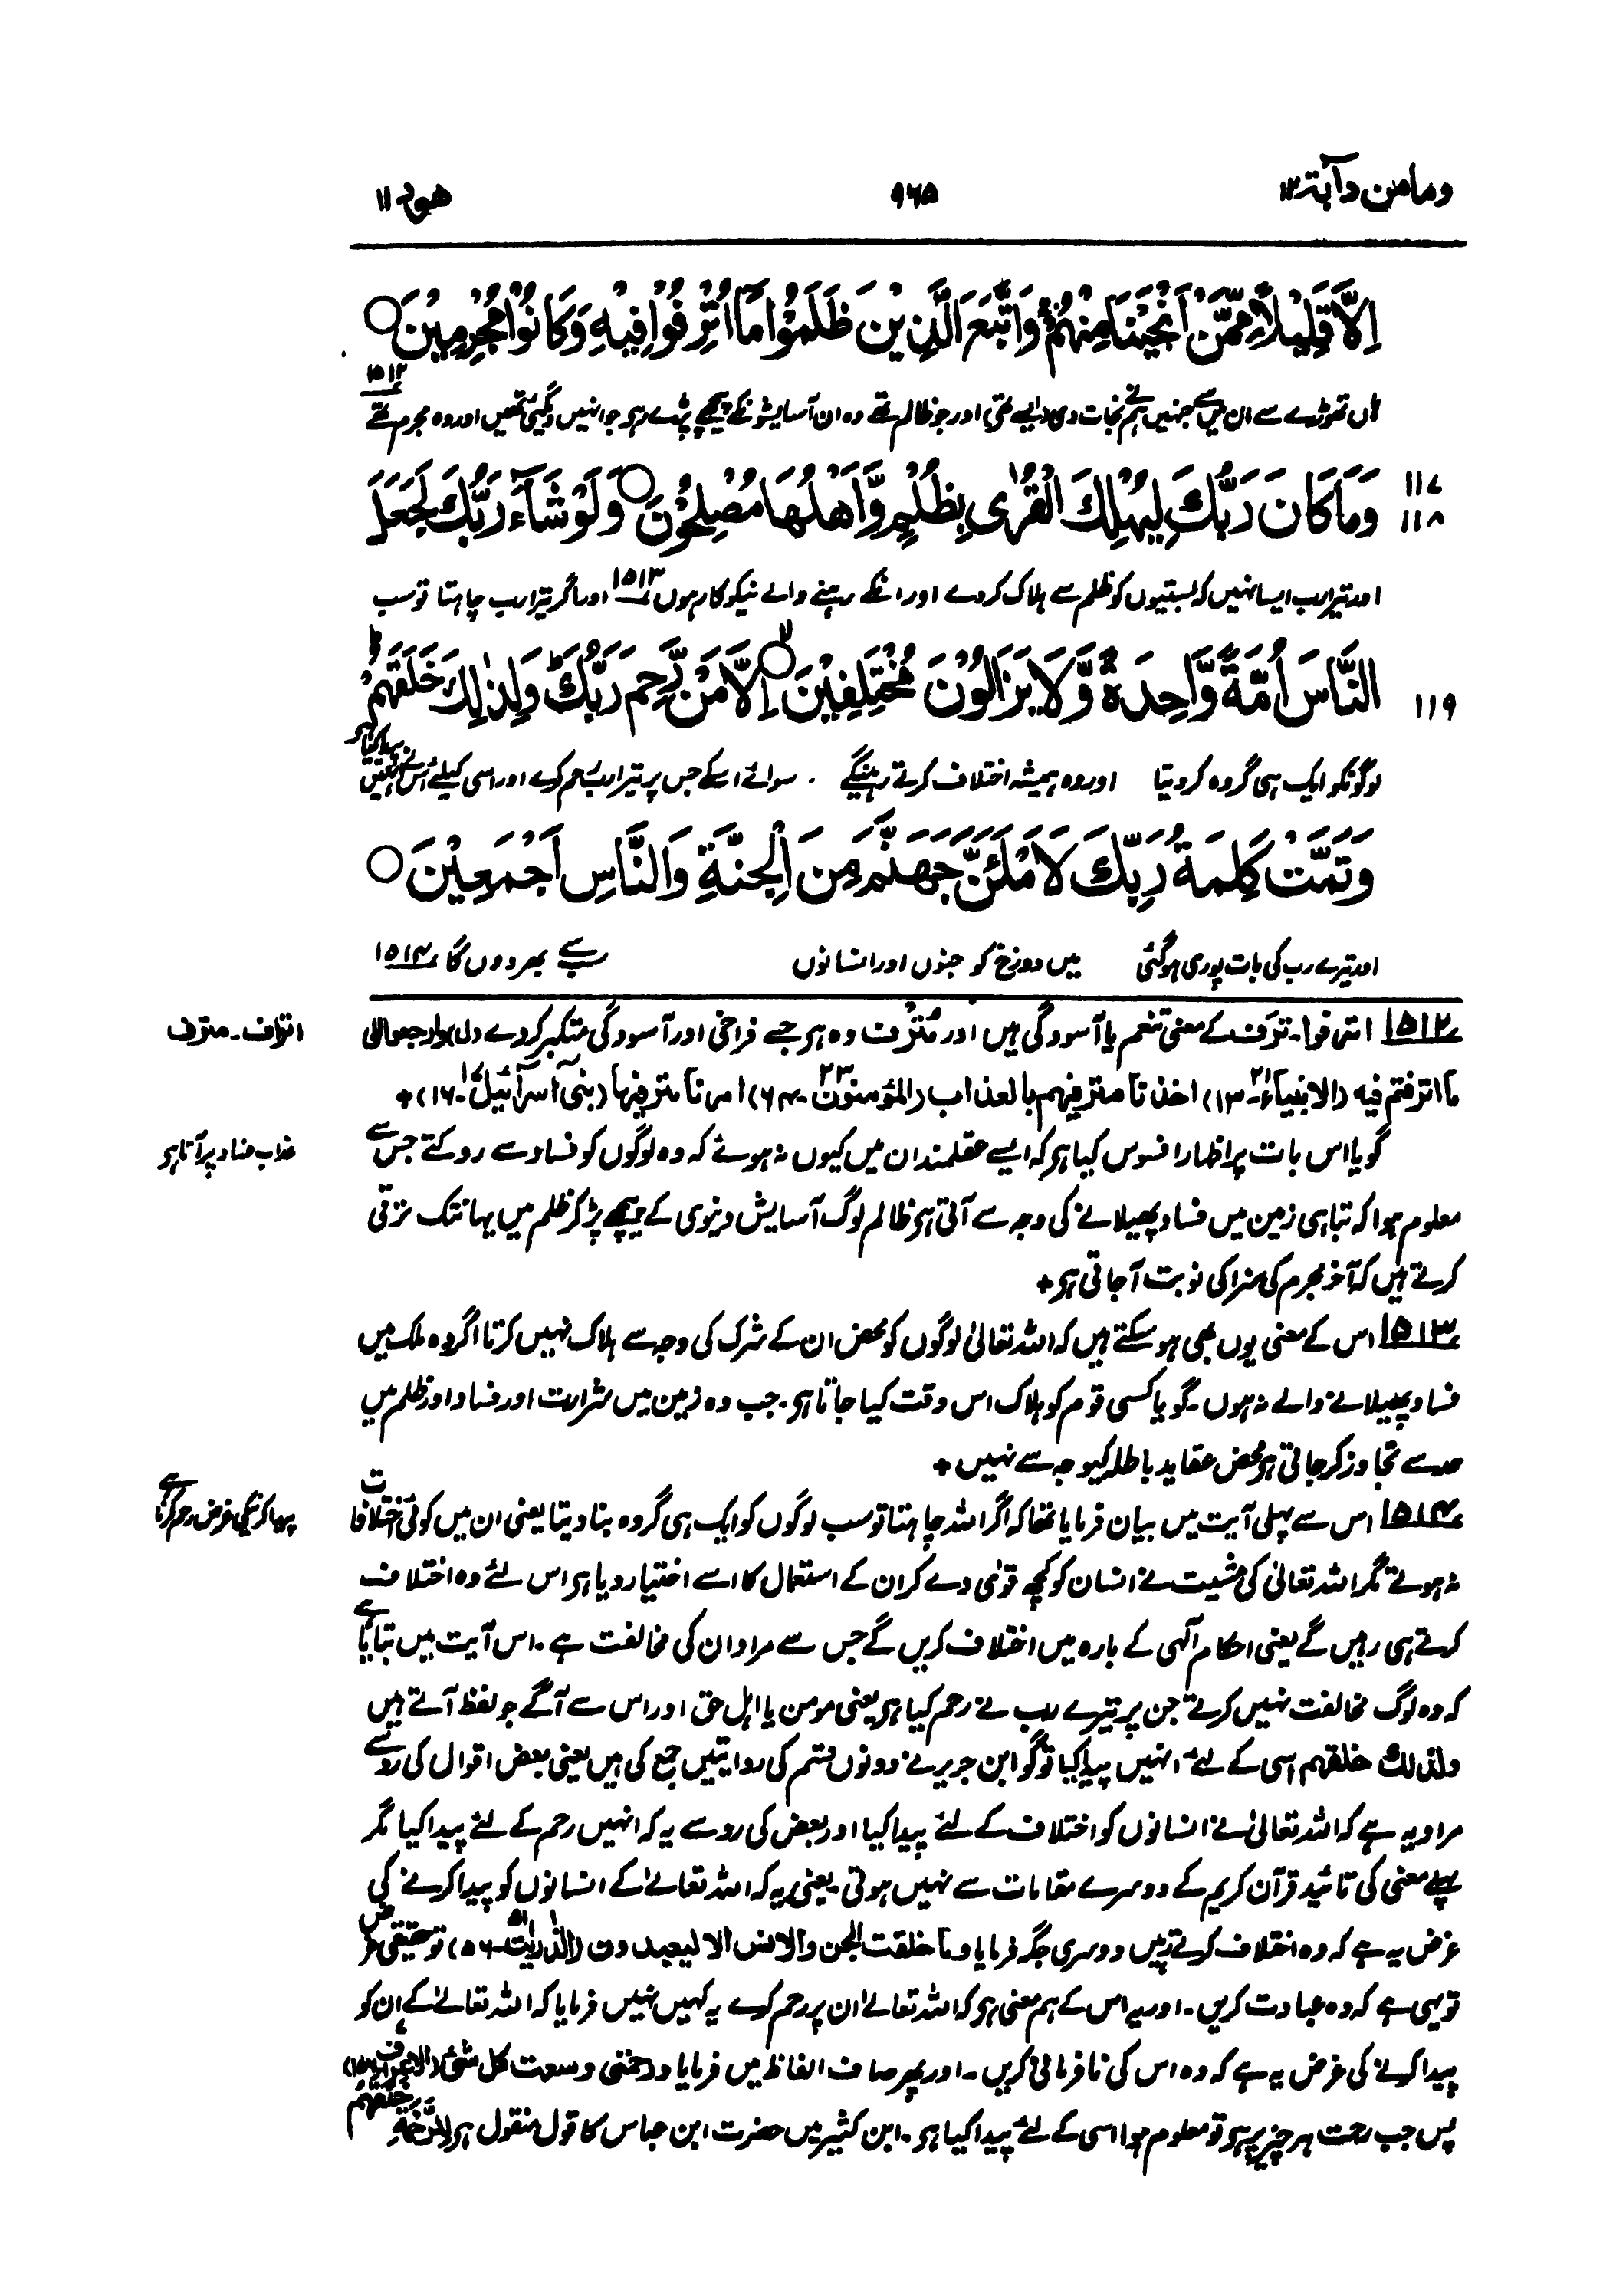 ومامن دآبة ۱۲
۹۶۵
هود ۱۱
اِلَّا قَلِيْلًا مِّمَّنْ اَنْجَيْنَا مِنْهُمْ ۚ وَاتَّبَعَ الَّذِيْنَ ظَلَمُوْا مَآ اُتْرِفُوْا فِيْهِ وَكَانُوْا مُجْرِمِيْنَ ○
ہاں تھوڑے سے ان میں سے جنہیں ہم نے نجات دی (ایسے تھے) اور جو ظالم تھے وہ ان آسایشو نکے پیچھے پڑے رہو جو انہیں دیگیئی تھیں اور وہ مجرم تھے ۱۵۱۲
۱۱۷ وَمَا كَانَ رَبُّكَ لِيُهْلِكَ الْقُرٰى بِظُلْمٍ وَّاَهْلُهَا مُصْلِحُوْنَ ○ وَلَوْ شَآءَ رَبُّكَ لَجَعَلَ ۱۱۸
اور تیرا رب ایسا نہیں کہ بستیوں کو ظلم سے ہلاک کر دے اور انکے رہنے والے نیکوکار ہوں ۱۵۱۳ اور اگر تیرا رب چاہتا تو سب
۱۱۹ النَّاسَ اُمَّةً وَّاحِدَةً وَّلَا يَزَالُوْنَ مُخْتَلِفِيْنَ ○ اِلَّا مَنْ رَّحِمَ رَبُّكَ ۭ وَلِذٰلِكَ خَلَقَهُمْ ۭ
لوگونکو ایک ہی گروہ کر دیتا اور وہ ہمیشہ اختلاف کرتے رہینگے . سوائے اسکے جس پر تیرا رب رحم کرے اور اسی کیلئے اس نے انہیں پیدا کیا ہو
وَتَمَّتْ كَلِمَةُ رَبِّكَ لَاَمْلَئَنَّ جَهَنَّمَ مِنَ الْجِنَّةِ وَالنَّاسِ اَجْمَعِيْنَ ○
اور تیرے رب کی بات پوری ہوگئی میں دوزخ کو جنوں اور انسانوں سب سے بھر دوں گا ۱۵۱۴
۱۵۱۲ اترفوا۔ ترف کے معنی تنعم یا آسودگی ہیں اور مُتْرَف وہ ہے جسے فراخی اور آسودگی متکبر کر دے دل، وارجعوا الی
اتراف۔ مترف
ما اترفتم فیه (الانبیاء ۲۱۔ ۱۳) اخذنا مترفیهم بالعذاب (المؤمنون ۲۳۔ ۶۴) امرنا مترفیها (بنی اسرآئیل ۱۷۔ ۱۶) +
گویا اس بات پر اظہار افسوس کیا ہو کہ ایسے عقلمند ان میں کیوں نہ ہوئے کہ وہ لوگوں کو فساد سے روکتے جس سے
عذاب فساد پر آتا ہو
معلوم ہوا کہ تباہی زمین میں فساد پھیلانے کی وجہ سے آتی ہو ظالم لوگ آسایش دنیوی کے پیچھے پڑ کر ظلم میں یہانتک ترقی
کرتے ہیں کہ آخر مجرم کی سزا کی نوبت آجاتی ہو +
۱۵۱۳ اس کے معنی یوں بھی ہو سکتے ہیں کہ اللہ تعالیٰ لوگوں کو محض ان کے شرک کی وجہ سے ہلاک نہیں کرتا اگر وہ ملک میں
فساد پھیلانے والے نہ ہوں۔ گویا کسی قوم کو ہلاک اس وقت کیا جاتا ہو۔ جب وہ زمین میں شرارت اور فساد اور ظلم میں
حد سے تجاوز کر جاتی ہو محض عقاید باطلہ کیوجہ سے نہیں +
۱۵۱۴ اس سے پہلی آیت میں بیان فرمایا تھا کہ اگر اللہ چاہتا تو سب لوگوں کو ایک ہی گروہ بنا دیتا یعنی ان میں کوئی اختلافات
پیدا کرنیکی غرض رحم کرنا ہے
نہ ہوتے مگر اللہ تعالیٰ کی مشیت نے انسان کو کچھ قویٰ دے کر ان کے استعمال کا اسے اختیار دیا ہو اس لئے وہ اختلاف
کرتے ہی رہیں گے یعنی احکام الٓہی کے بارہ میں اختلاف کریں گے جس سے مراد ان کی مخالفت ہے۔ اس آیت میں بتایا ہے
کہ وہ لوگ مخالفت نہیں کرتے جن پر تیرے رب نے رحم کیا ہو یعنی مومن یا اہل حق اور اس سے آگے جو لفظ آتے ہیں
ولذلك خلقهم اسی کے لئے انہیں پیدا کیا تو گو ابن جریر نے دونوں قسم کی روایتیں جمع کی ہیں یعنی بعض اقوال کی رو سے
مراد یہ ہے کہ اللہ تعالیٰ نے انسانوں کو اختلاف کے لئے پیدا کیا اور بعض کی رو سے یہ کہ انہیں رحم کے لئے پیدا کیا مگر
پہلے معنی کی تائید قرآن کریم کے دوسرے مقامات سے نہیں ہوتی۔ یعنی یہ کہ اللہ تعالےٰ کے انسانوں کو پیدا کرنے کی
غرض یہ ہے کہ وہ اختلاف کرتے رہیں دوسری جگہ فرمایا وما خلقت الجن والانس الا ليعبدون (الذٰریٰت ۵۱۔ ۵۶) تو حقیقی غرض
تو یہی ہے کہ وہ عبادت کریں۔ اور یہ اس کے ہم معنی ہو کہ اللہ تعالےٰ ان پر رحم کرے یہ کہیں نہیں فرمایا کہ اللہ تعالےٰ کے ان کو
پیدا کرنے کی غرض یہ ہے کہ وہ اس کی نافرمانی کریں۔ اور پھر صاف الفاظ میں فرمایا ورحمتی وسعت کل شیٔ (الاعراف
پس جب رحمت ہر چیز پر ہو تو معلوم ہوا اسی کے لئے پیدا کیا ہو۔ ابن کثیر میں حضرت ابن عباس کا قول منقول ہو للرحمة خلقهم